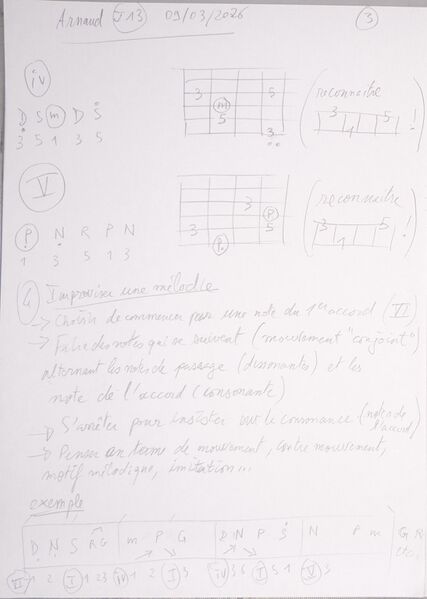 Arnaud J13 09/03/2026 3
iv
D S m D S
3 5 1 3 5
3 5
m
5
3
(reconnaître
3 5
1
!
V
P N R P N
1 3 5 1 3
3
P
3 5
P
(reconnaître
3 5
1
!
4 Improviser une mélodie
→ Choisir de commencer par une note du 1er accord (VI)
→ Faire des notes qui se suivent (mouvement "conjoint")
alternant les notes de passage (dissonantes) et les
note de l'accord (consonante)
→ S'arrêter pour insister sur la consonance (notes de
l'accord)
→ Penser en terme de mouvement, contre mouvement,
motif mélodique, imitation...
exemple
D N S R G m P G D N P S N P m G R
etc.
VI 1 2 I 1 23 iv 1 2 I 3 iv 3 6 I 5 1 V 3